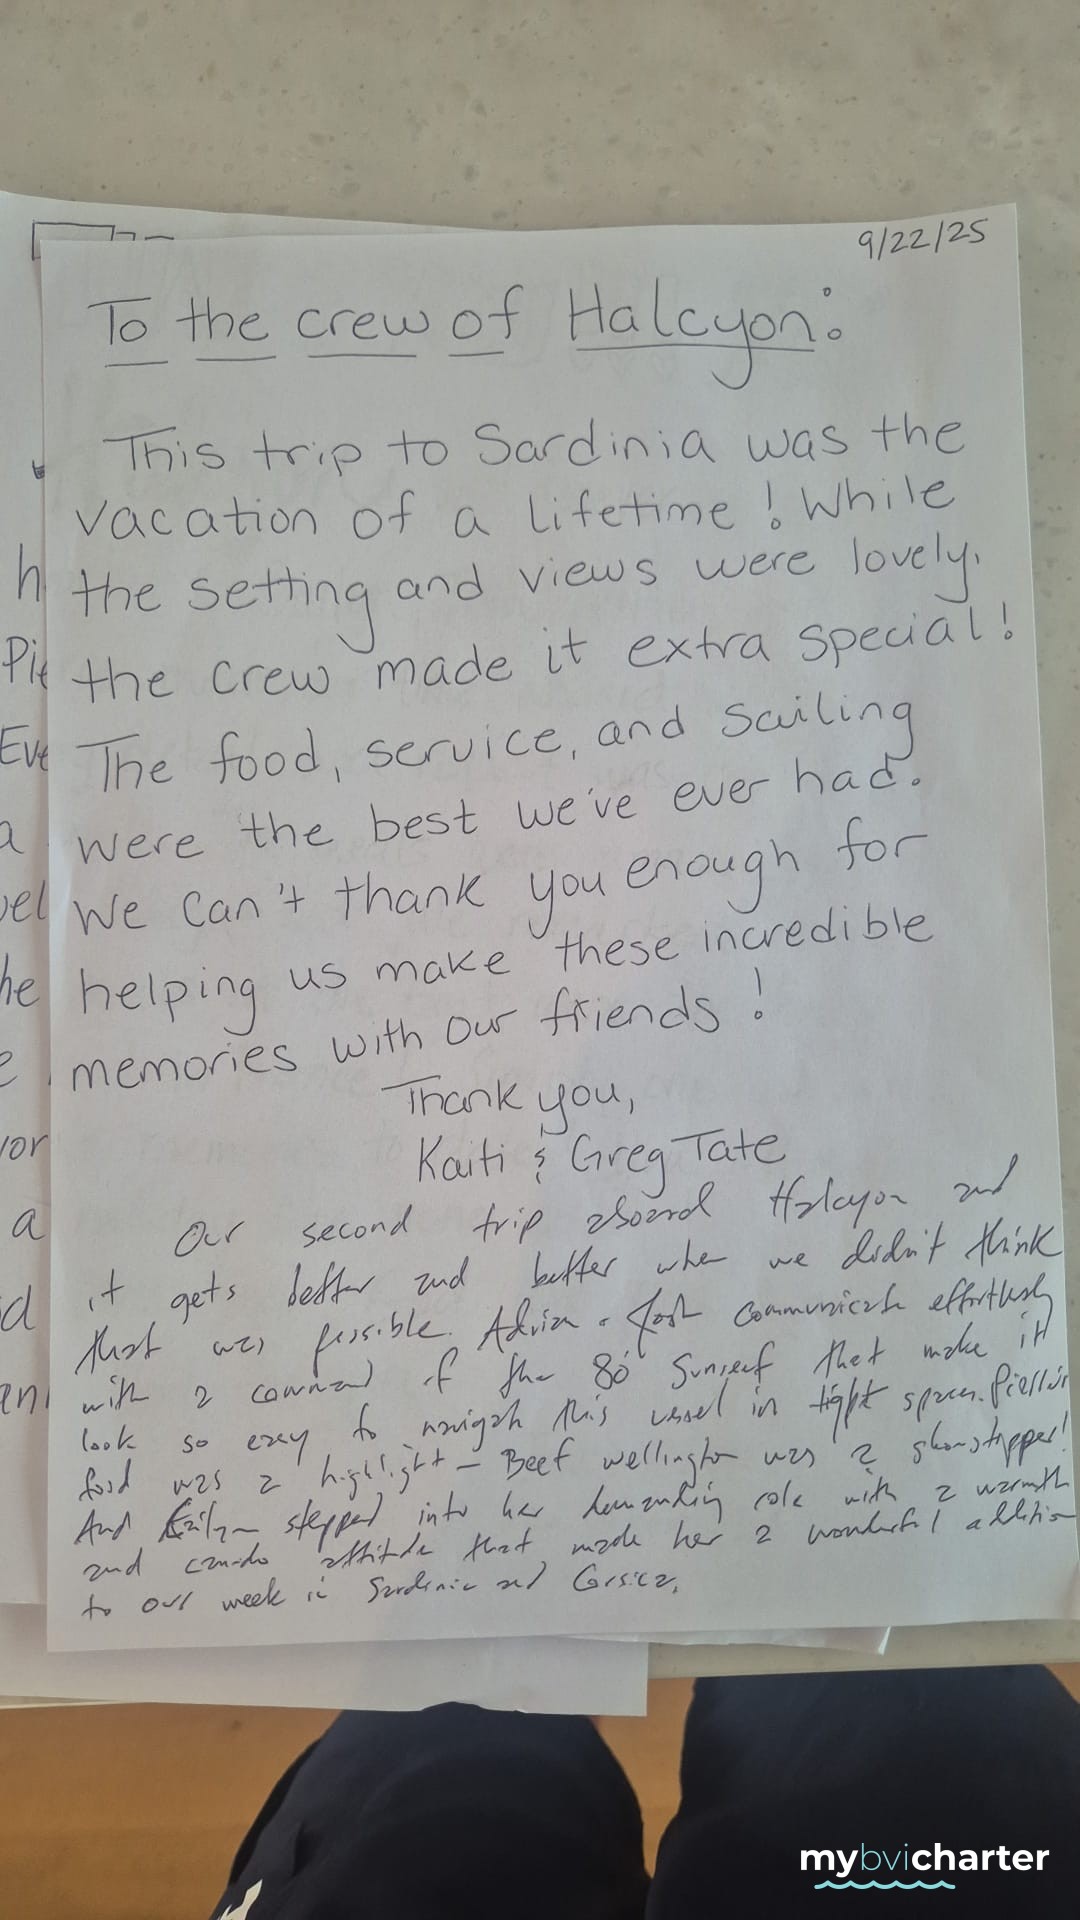 9/22/25
To the crew of Halcyon:
This trip to Sardinia was the
vacation of a lifetime! While
the setting and views were lovely,
the crew made it extra special!
The food, service, and sailing
were the best we've ever had.
We can't thank you enough for
helping us make these incredible
memories with our friends!
Thank you,
Kaiti & Greg Tate
Our second trip aboard Halcyon and
it gets better and better when we didn't think
that was possible. Josh communicate effortlessly
with a command of the 80' Sunreef that make it
look so easy to navigate this vessel in tight spaces.
food was a highlight – Beef wellington was a showstopper!
And stepped into her demanding role with a warmth
and can-do attitude that made her a wonderful addition
to our week in Sardinia and Corsica.
h
Pie
Eve
a
vel
he
e
vor
a
d
an
mybvicharter